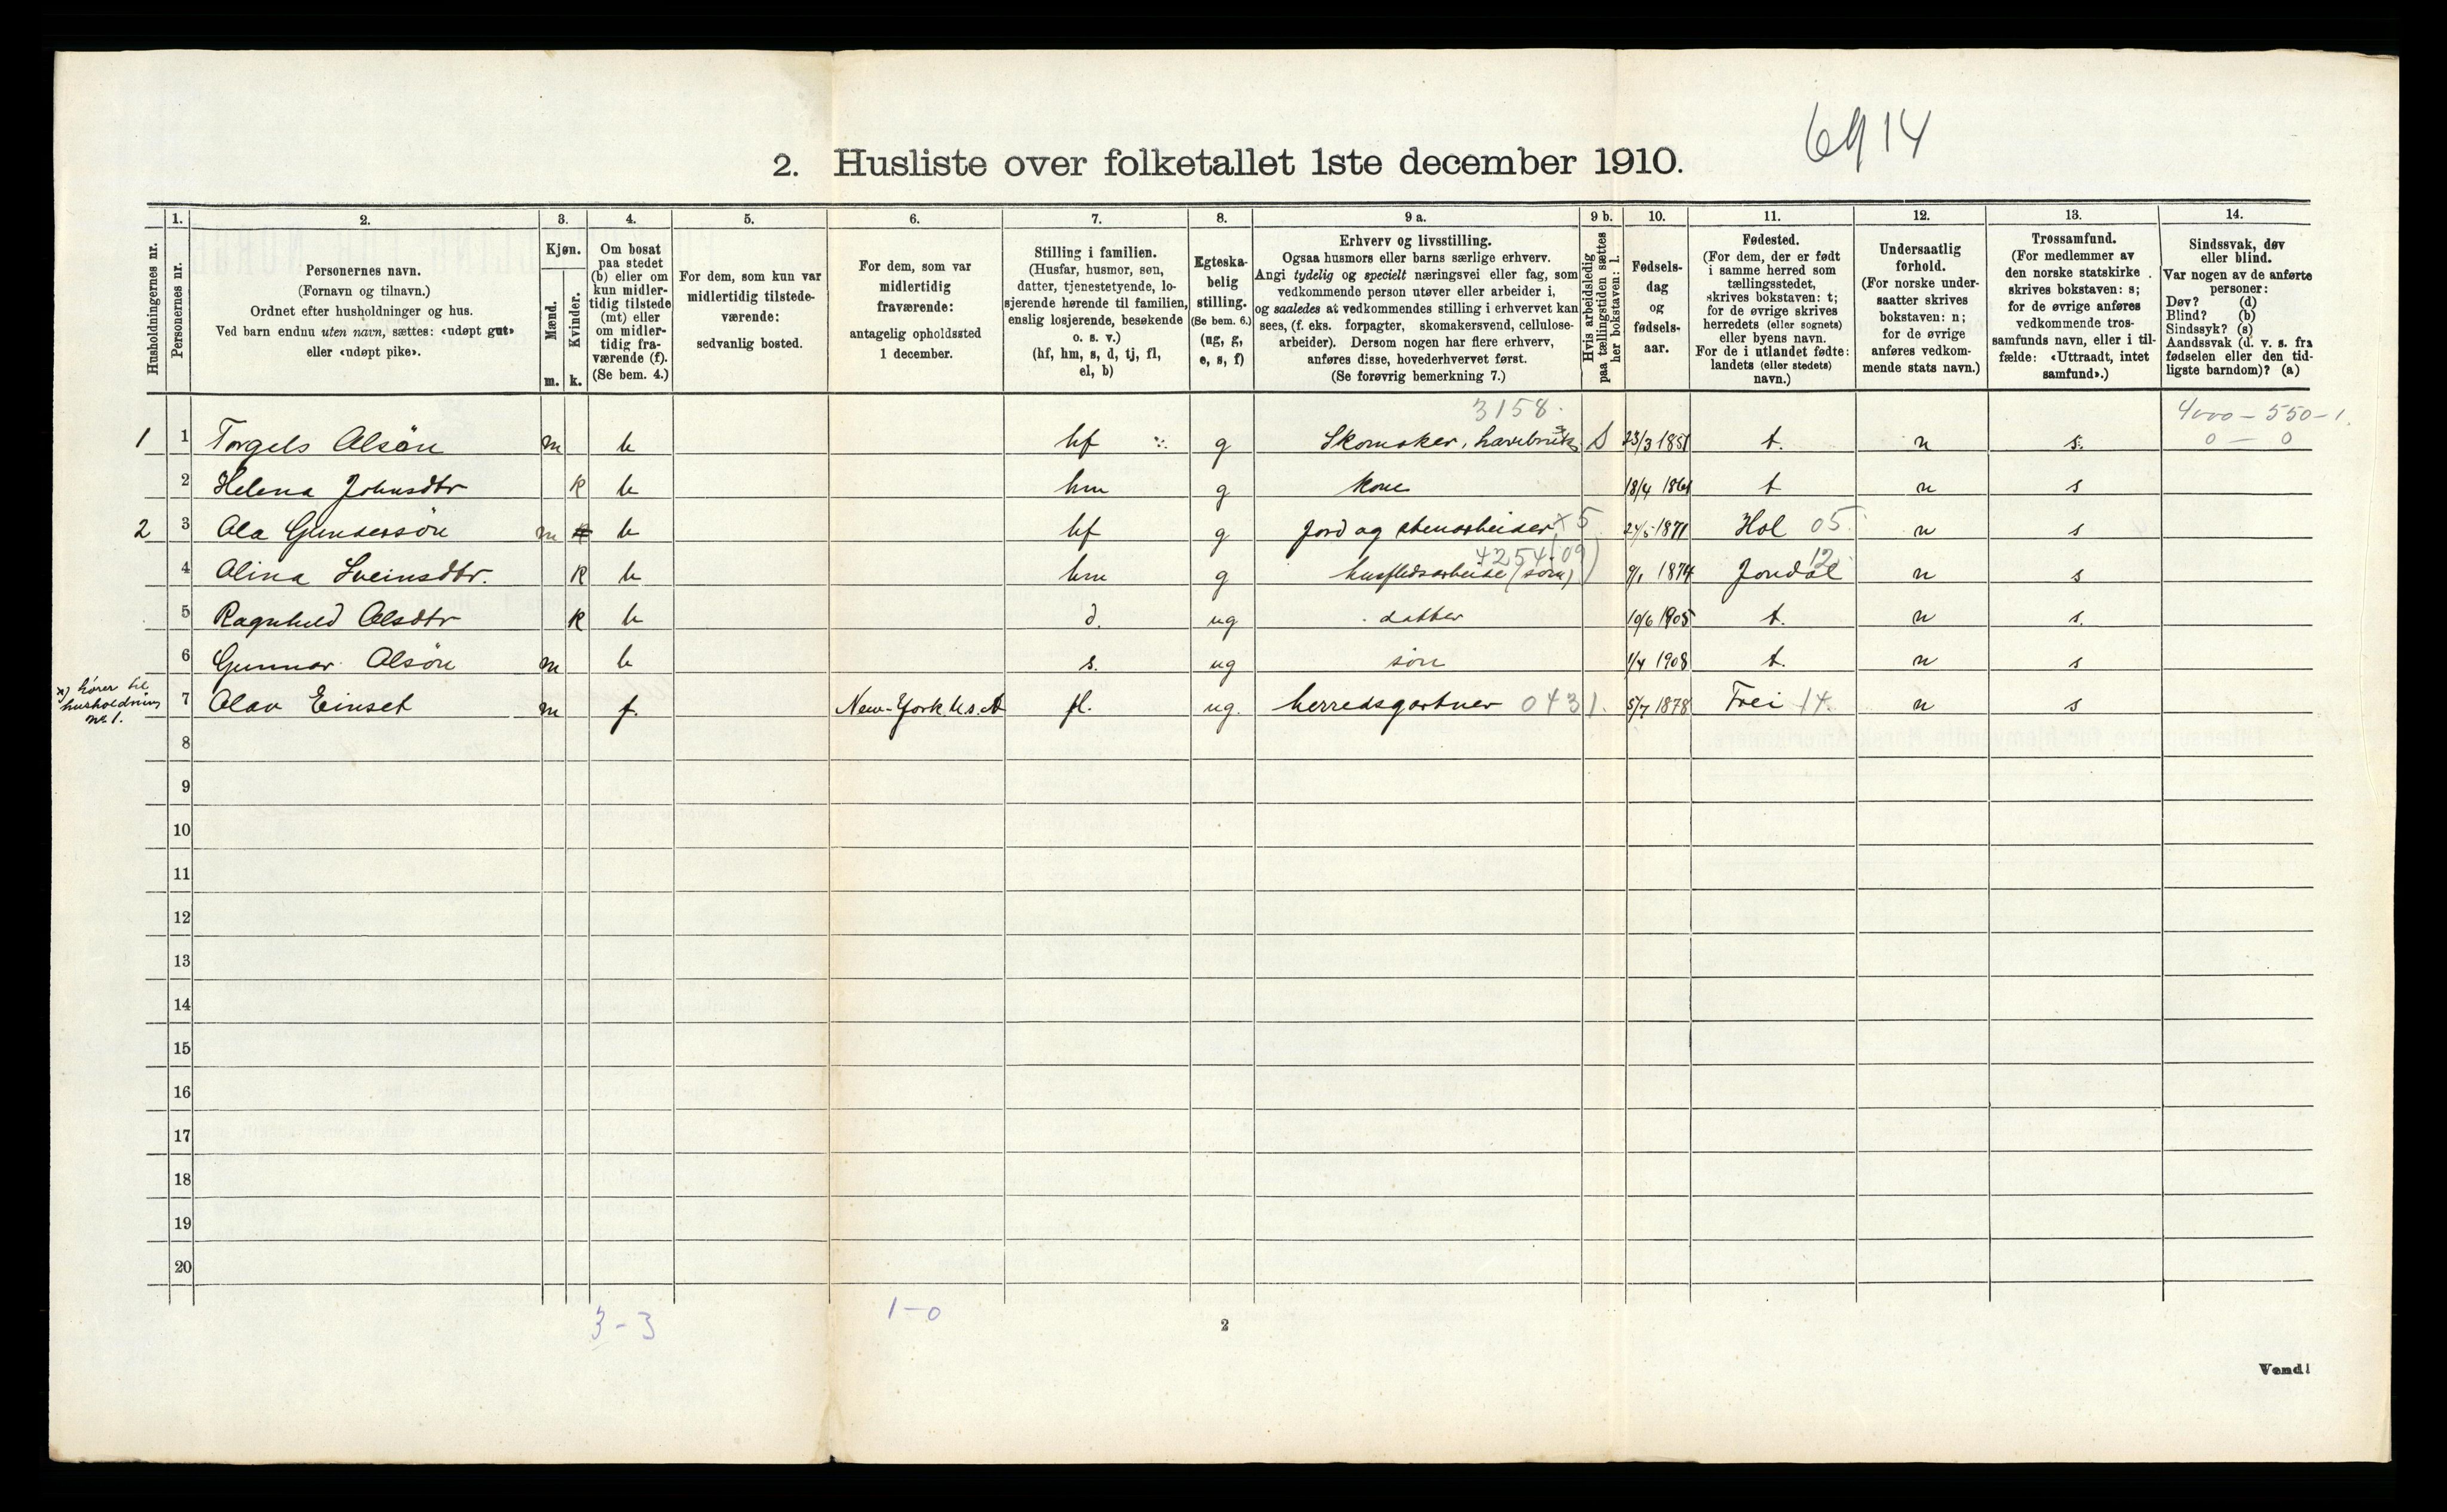 6914
2. Husliste over folketallet 1ste december 1910.
Husholdningernes nr.
1.
Personernes nr.
2.
Personernes navn.
(Fornavn og tilnavn.)
Ordnet efter husholdninger og hus.
Ved barn endnu uten navn, sættes: «udøpt gut»
eller «udøpt pike».
3.
Kjøn.
Mænd.
m.
Kvinder.
k.
4.
Om bosat
paa stedet
(b) eller om
kun midler-
tidig tilstede
(mt) eller
om midler-
tidig fra-
værende (f).
(Se bem. 4.)
5.
For dem, som kun var
midlertidig tilstede-
værende:
sedvanlig bosted.
6.
For dem, som var
midlertidig
fraværende:
antagelig opholdssted
1 december.
7.
Stilling i familien.
(Husfar, husmor, søn,
datter, tjenestetyende, lo-
sjerende hørende til familien,
enslig losjerende, besøkende
o. s. v.)
(hf, hm, s, d, tj, fl,
el, b)
8.
Egteska-
belig
stilling.
(Se bem. 6.)
(ug, g,
e, s, f)
9 a.
Erhverv og livsstilling.
Ogsaa husmors eller barns særlige erhverv.
Angi tydelig og specielt næringsvei eller fag, som
vedkommende person utøver eller arbeider i,
og saaledes at vedkommendes stilling i erhvervet kan
sees, (f. eks. forpagter, skomakersvend, cellulose-
arbeider). Dersom nogen har flere erhverv,
anføres disse, hovederhvervet først.
(Se forøvrig bemerkning 7.)
9 b.
Hvis arbeidsledig
paa tællingstiden sættes
her bokstaven: l.
10.
Fødsels-
dag
og
fødsels-
aar.
11.
Fødested.
(For dem, der er født
i samme herred som
tællingsstedet,
skrives bokstaven: t;
for de øvrige skrives
herredets (eller sognets)
eller byens navn.
For de i utlandet fødte:
landets (eller stedets)
navn.)
12.
Undersaatlig
forhold.
(For norske under-
saatter skrives
bokstaven: n;
for de øvrige
anføres vedkom-
mende stats navn.)
13.
Trossamfund.
(For medlemmer av
den norske statskirke
skrives bokstaven: s;
for de øvrige anføres
vedkommende tros-
samfunds navn, eller i til-
fælde: «Uttraadt, intet
samfund».)
14.
Sindssvak, døv
eller blind.
Var nogen av de anførte
personer:
Døv? (d)
Blind? (b)
Sindssyk? (s)
Aandssvak (d. v. s. fra
fødselen eller den tid-
ligste barndom)? (a)
3158. 4000 – 550 – 1.
1 1 Torgels Olsøn m b hf g Skomaker, havebruk S 23/3 1851 t. n s. 0 – 0
2 Helena Johnsdtr k b hm g kone 18/4 1861 t n s
2 3 Ola Gundersøn m b hf g jord og stenarbeider x5 24/5 1871 Hol 05. n s
4254(09)
4 Olina Sveinsdtr. k b hm g husflidsarbeide (søm) 9/1 1874 Jondal 12. n s
5 Ragnhild Olsdtr k b d. ug datter 10/6 1905 t. n s.
6 Gunnar Olsøn m b s. ug søn 1/4 1908 t. n s
x) hører til
husholdning
nr 1.
7 Olav Einset m f. New-York U.s.A fl. ug. herredsgartner 0431. 5/7 1878 Frei 14. n s
8
9
10
11
12
13
14
15
16
17
18
19
20
3 – 3
1 – 0
2
Vend!